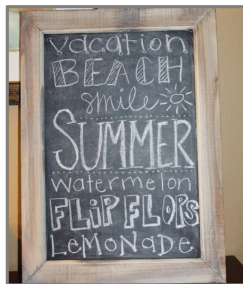 vacation
BEACH
smile
SUMMER
watermelon
FLiP FLOPS
LeMONaDe